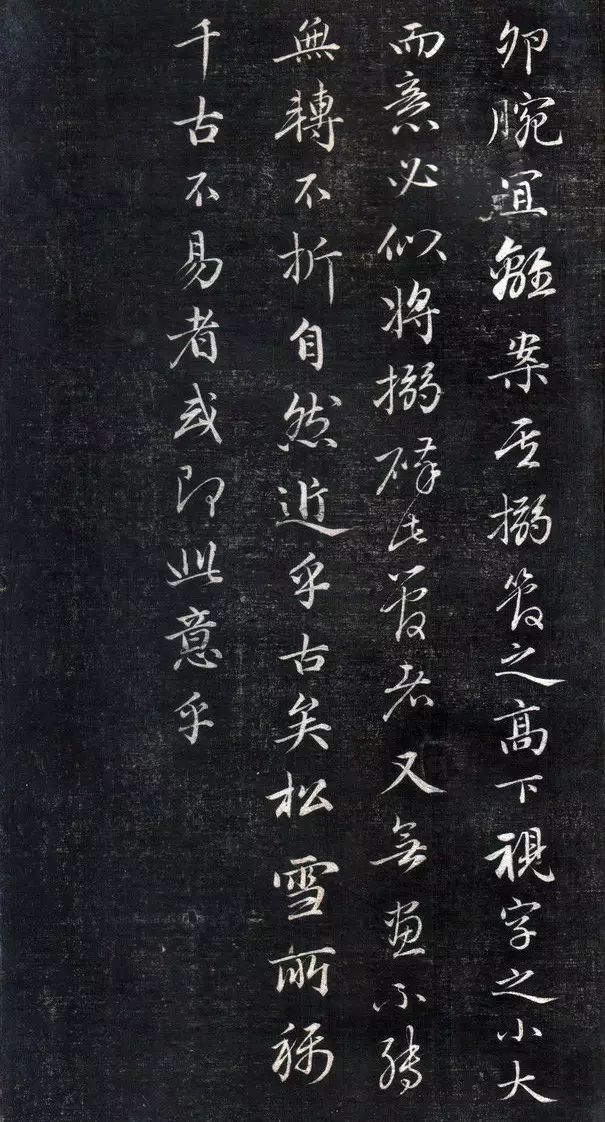 卯腕宜離案其搦管之高下視字之小大
而意必似將搦碎此管者又無畫不轉
無轉不折自然近乎古矣松雪所稱
千古不易者或即此意乎